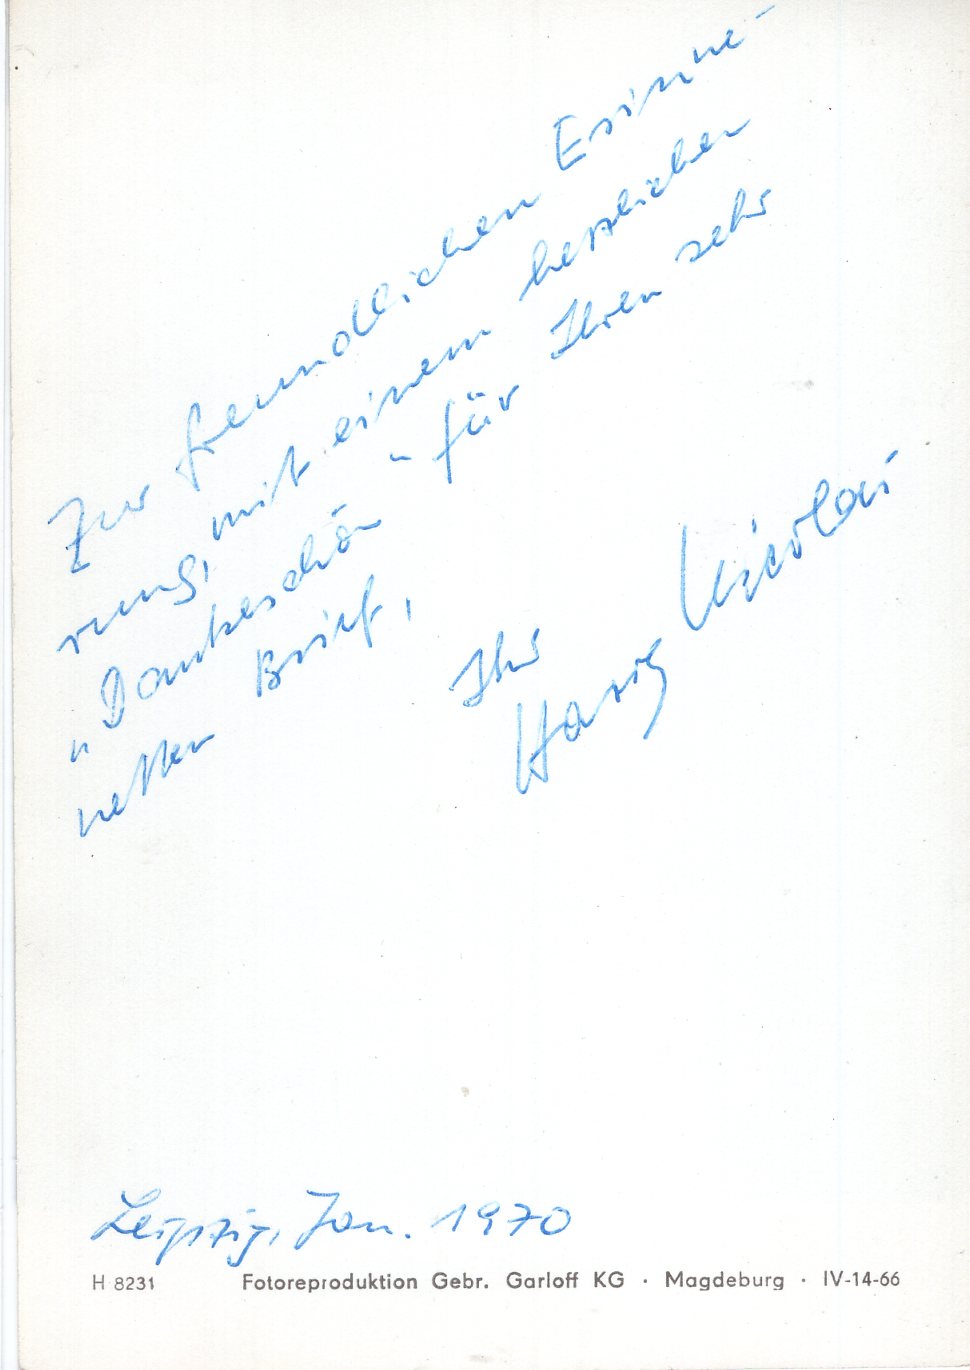 Zur freundlichen Erinne-
rung, mit einem herzlichen
"Dankeschön" für Ihren sehr
netten Brief,
Ihr
Harry Nicolai
Leipzig, Jan. 1970
H 8231 Fotoreproduktion Gebr. Garloff KG · Magdeburg · IV-14-66